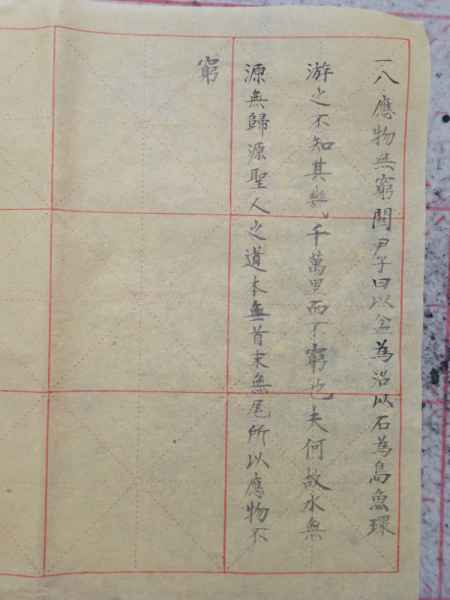 一八應物無窮關尹子曰以盆為沼以石為島魚環
游之不知其幾千萬里而不窮也夫何故水無
源無歸源聖人之道本無首末無尾所以應物不
窮